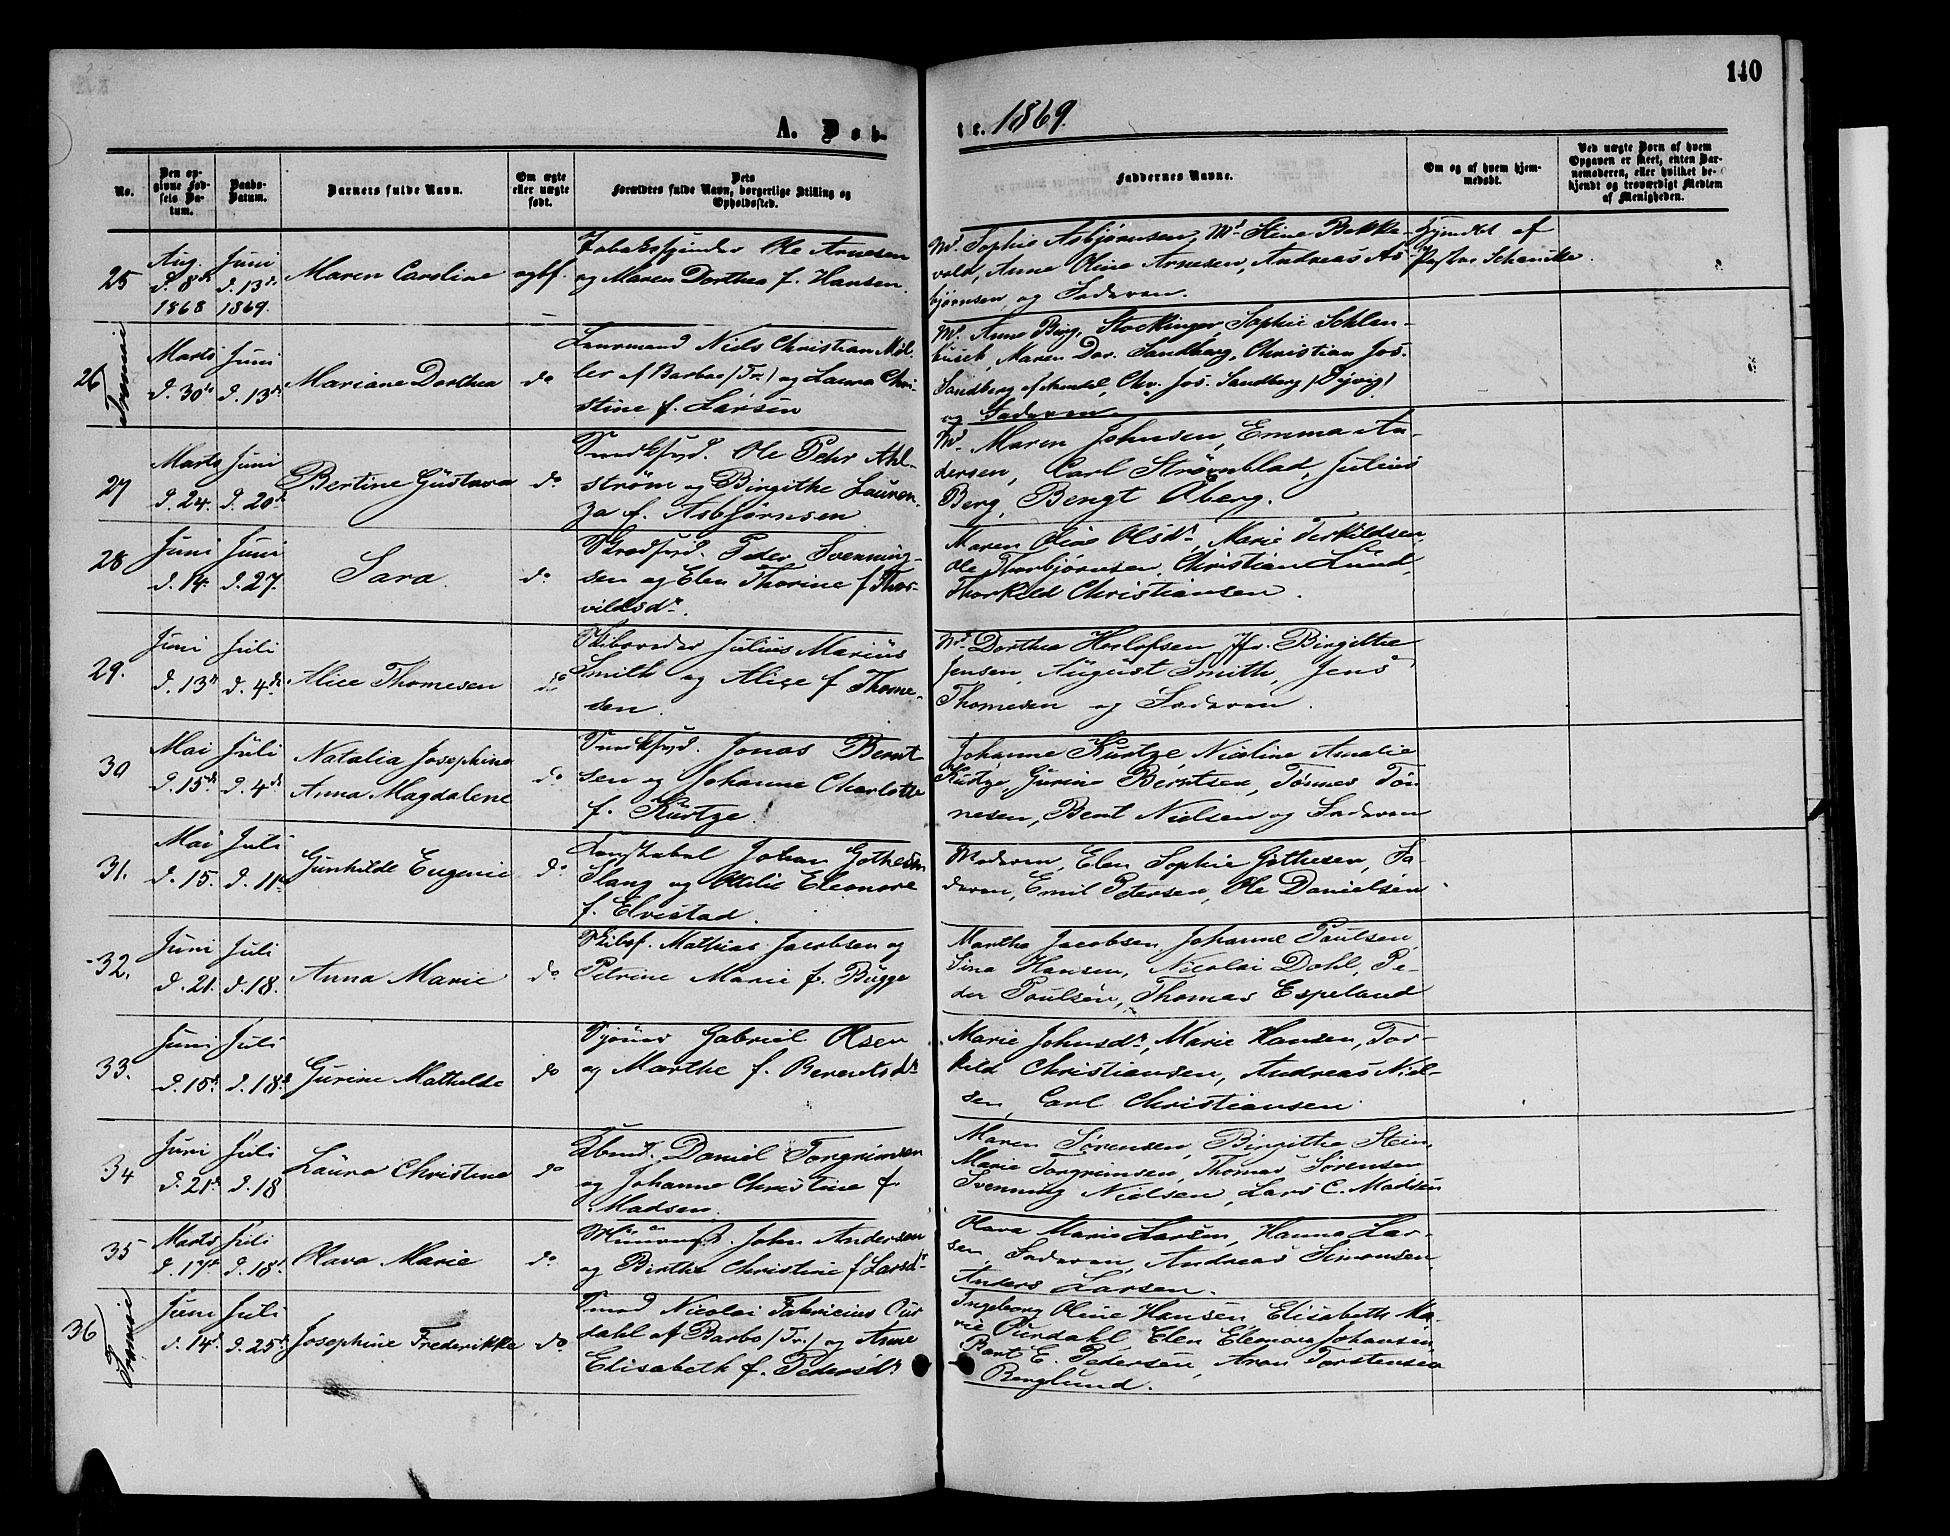 140
A. Døb-
te. 1869.
No.
Den op-
givne Fød-
sels Da-
tum.
Daabs-
Datum.
Barnets fulde Navn.
Om ægte
eller uægte
født.
Dets
Forældres fulde Navn, borgerlige Stilling og
Opholdssted.
Faddernes Navne.
Om og af hvem hjem-
medøbt.
Ved uægte Børn af hvem
Opgaven er skeet, enten Bar-
nemoderen, eller hvilket be-
kjendt og troværdigt Medlem
af Menigheden.
25
Aug.
d. 8de
1868
Juni
d. 13de
1869.
Maren Caroline
Ole Arnesen
og Maren Dorthea f. Hansen.
Md. Sophie Asbjørnsen, Md. Stine Bakke-
vold, Anne Oline Arnesen, Andreas As-
bjørnsen og Faderen.
Hjemdbt af
Pastor Schanche.
26
Tromø
Marts
d. 30te
Juni
d. 13de
Mariane Dorthea
do
Niels Christian Møl-
ler af Barbo (Tr.) og Laura Chri-
stine f. Larsen
Md. Anne Berg, Stockinger, Sophie Schlan-
busch, Maren Dor. Sandberg, Christian Jos.
Sandberg af Arendal, Chr. Jos. Sandberg
og Faderen
27
Marts
d. 24.
Juni
d. 20de
Bertine Gustava
do
Ole Pehr Ahl-
strøm og Birgithe Lauren-
za f. Asbjørnsen
Md. Maren Johnsen, Emma An-
dersen, Carl Strømblad, Julius
Berg, Bengt Åberg.
28
Juni
d. 14.
Juni
d. 27.
Sara.
do
Peder Svenning-
sen og Elen Thorine f. Thor-
vildsdr.
Maren Olsdr, Marie Terkildsen,
Ole Thorbjørnsen, Christian Lund,
Thorkild Christiansen.
29.
Juni
d. 13de
Juli
d. 4de
Alice Thomesen
do
Skibsreder Julius Marius
Smith og Alice f Thome-
sen.
Md. Dorthea Herlofsen, Jfr. Birgitte
Jensen, August Smith, Jens
Thomesen og Faderen.
30
Mai
d. 15de
Juli
d. 4de
Natalia Josephine
Anna Magdalene
do
Jonas Bernt-
sen og Johanne Charlotte
f. Kurtze.
Johanne Kurtze, Nicoline Amalie
Kurtze, Gurine Berntsen, Tønnes Tøn-
nesen, Bent Nielsen og Faderen
31.
Mai
d. 15.
Juli
d. 11te
Gunhilde Eugenie
do
Konstabel Johan Gothesen
Slang og Otilie Eleonore
f. Elvestad.
Moderen, Elen Sophie Gothesen, Fa-
deren, Emil Petersen, Ole Danielsen
32.
Juni
d. 21.
Juli
d. 18.
Anna Marie
do
Skibsf. Mathias Jacobsen og
Petrine Marie f. Bugge
Martha Jacobsen, Johanne Paulsen,
Sina Hansen, Nicolai Dahl, Pe-
der Poulsen, Thomas Espeland
33.
Juni
d. 15de
Juli
d. 18de
Gurine Mathilde
do
Gabriel Olsen
og Marthe f. Berentsdr
Marie Johnsdr, Marie Hansen, Tor-
kild Christiansen, Andreas Niel-
sen, Carl Christiansen
34
Juni
d. 21de
Juli
d. 18
Laura Christine
do
Daniel Torgrimsen
og Johanne Christine f.
Madsen.
Maren Sørensen, Birgithe Stein,
Marie Torgrimsen, Thomas Sørensen
Svenning Nielsen, Lars C. Madsen
35
Marts
d. 17de
Juli
d. 18de
Olava Marie
do
John Andersen
og Birthe Christine f Larsdr
Olava Marie Larsen, Hanna Lar-
sen, Faderen, Andreas Simonsen
Anders Larsen.
36
Tromø
Juni
d. 14de
Juli
d. 25de
Josephine Frederikke
do
Nicolai Fabricius Our-
dahl af Barbo (Tr.) og Anne
Elisabeth f. Pedersdr
Ingeborg Oline Hansen, Elisabeth Ma-
rie Ourdahl, Elen Elenora Johansen,
Bent E. Pedersen, Aron Torstensen
Berglund.